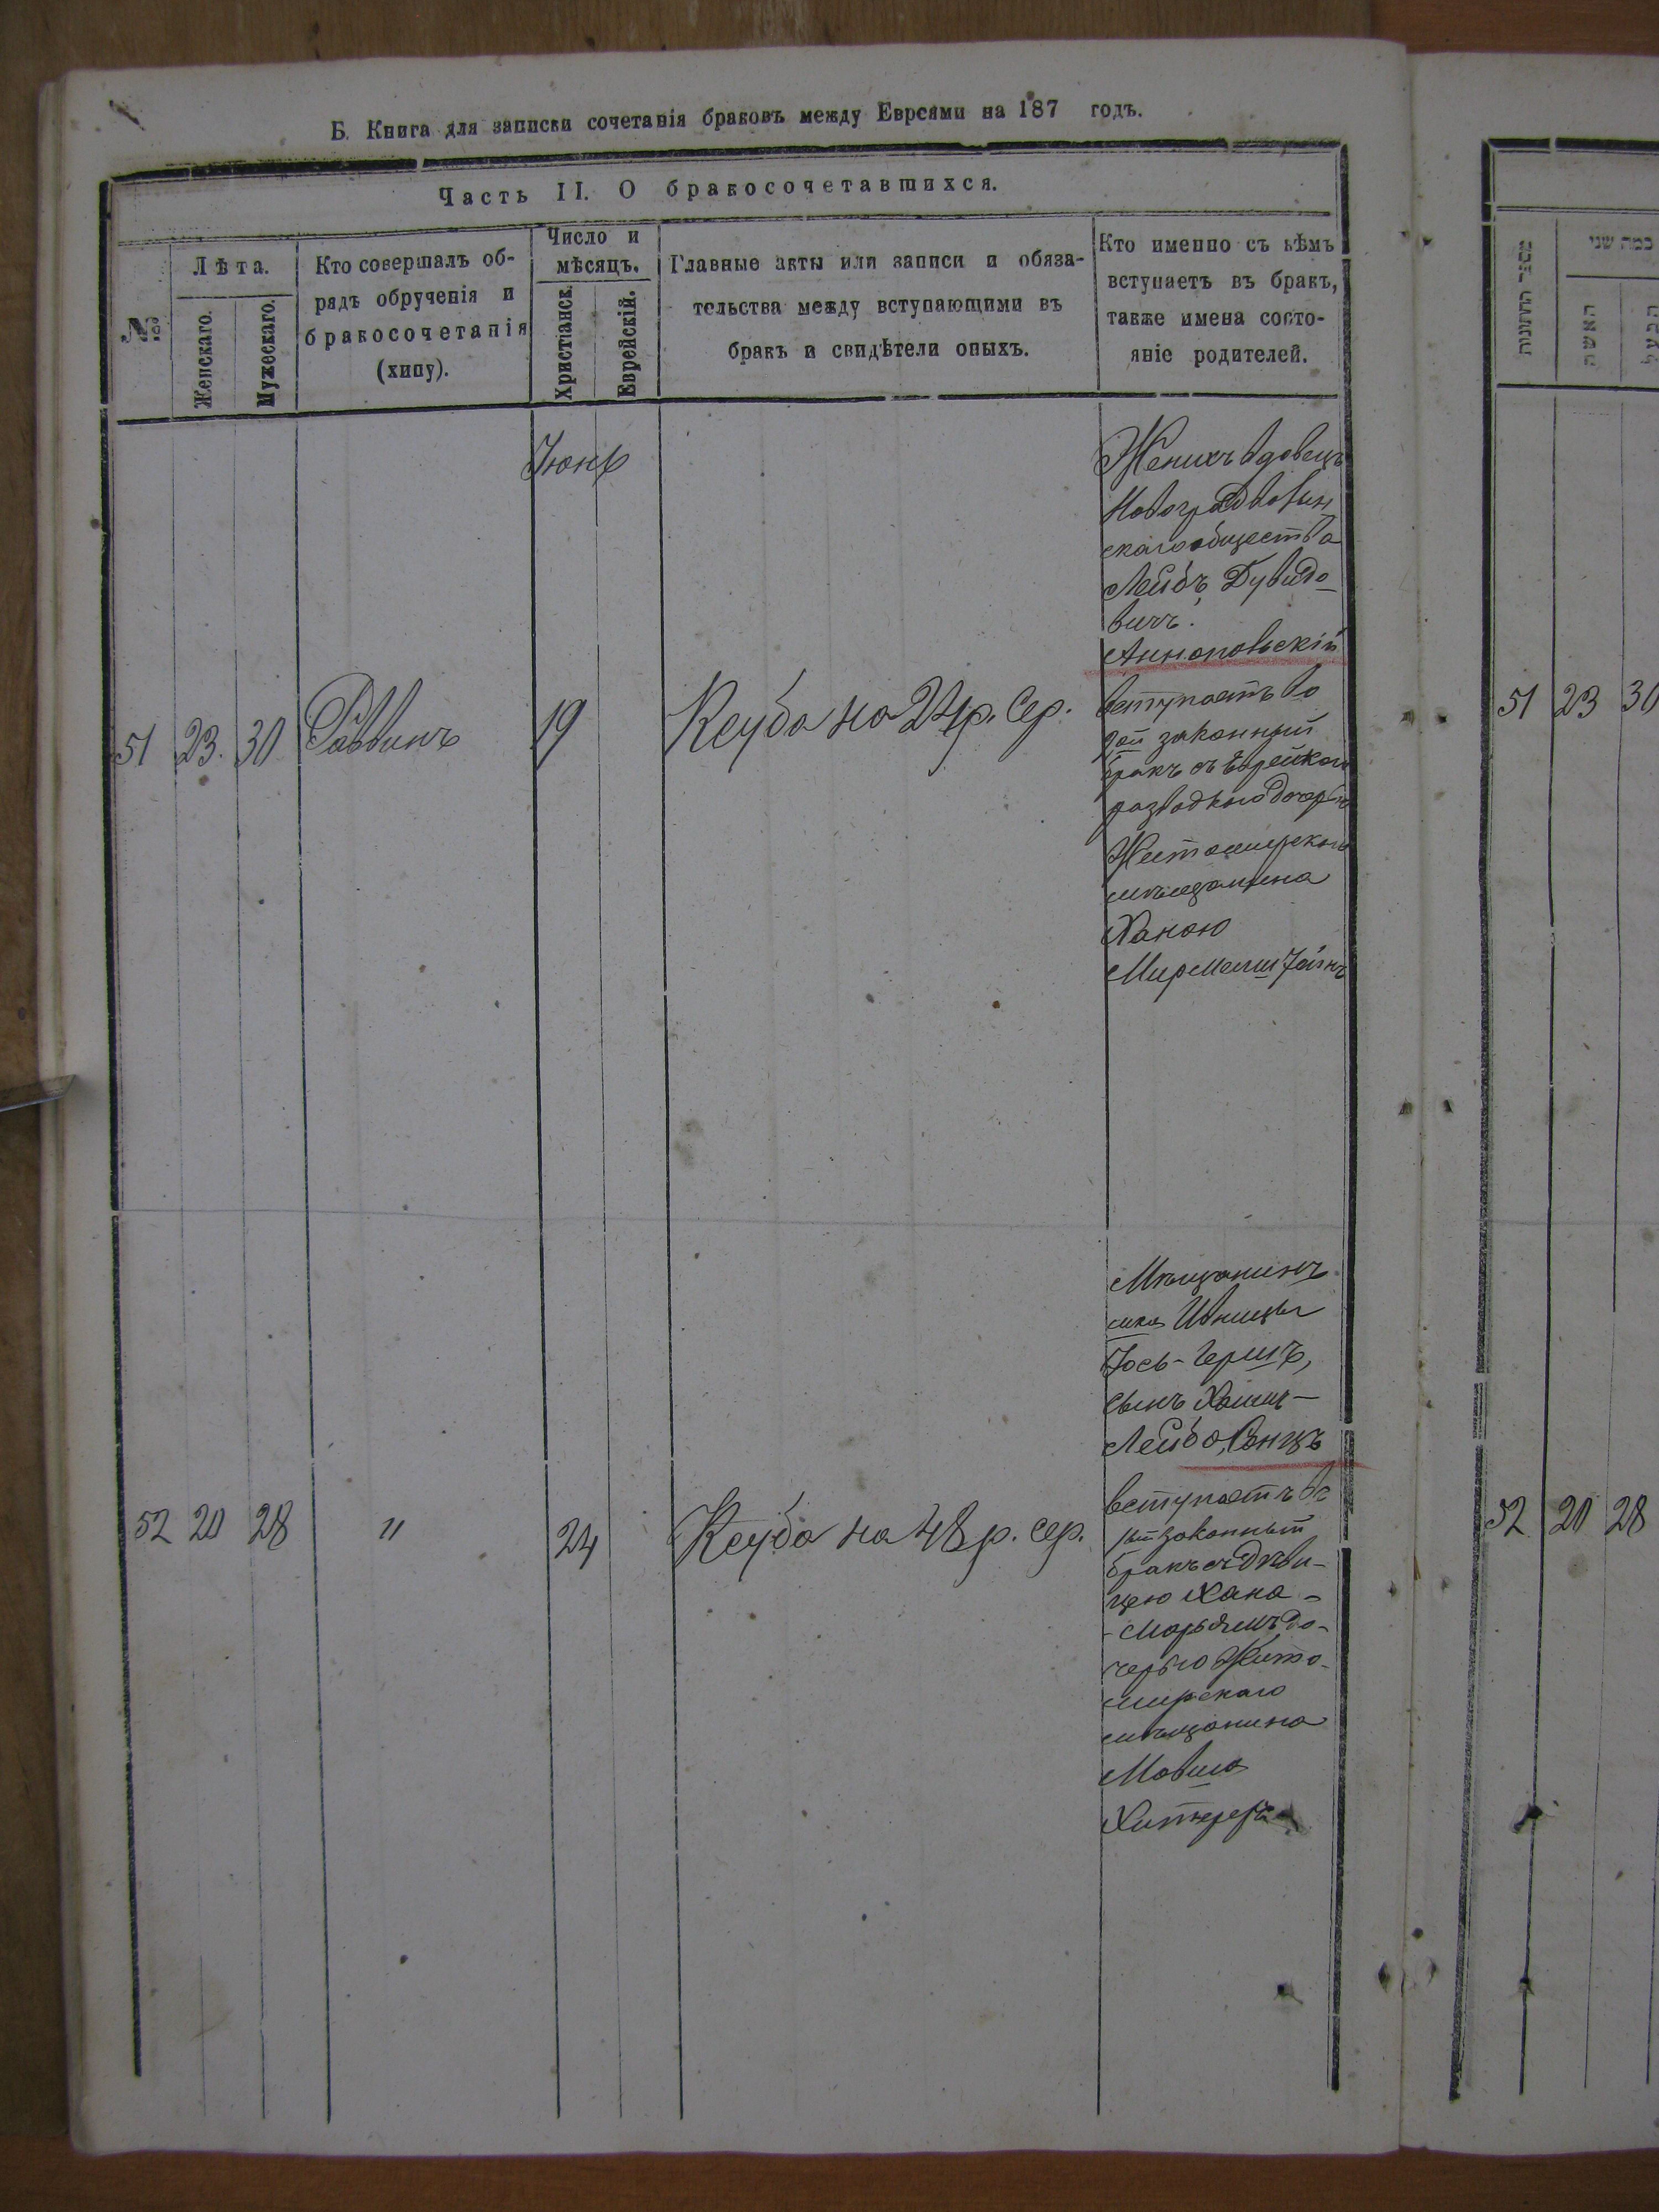 Б. Книга для записки сочетанія браковъ между Евреями на 187 годъ.
Часть II. О бракосочетавшихся.
№
Лѣта.
Женскаго.
Мужескаго.
Кто совершалъ об-
рядъ обрученія и
бракосочетанія
(хипу).
Число и
мѣсяцъ.
Христіанск.
Еврейскій.
Главные акты или записи и обяза-
тельства между вступающими въ
бракъ и свидѣтели оныхъ.
Кто именно съ кѣмъ
вступаетъ въ бракъ,
также имена состо-
яніе родителей.
Іюнь
51 23. 30 Раввинъ 19 Кеуба на 24 р. Сер.
Женихъ вдовецъ
Новоградволын
скаго общества
Лейбъ Дувидо-
вичъ
Аннопольскій
вступаетъ во
2ой законный
бракъ съ Еврейкою
разводкою дочерью
Житомирскаго
мѣщанина
Ханою
Мирмельштейнъ
52 20 28 " 24 Кеуба на 48 р. сер.
Мѣщанинъ
мѣс. Ивницы
Іось-Гершъ,
сынъ Хаимъ-
Лейба,
вступаетъ въ
1ый законный
бракъ съ дѣви-
цею Хана-
-Марьямъ до-
черью Жито-
мирскаго
мѣщанина
Мовша
51 23 30
52 20 28
מספר החתונות
כמה שני
האשה
הבעל